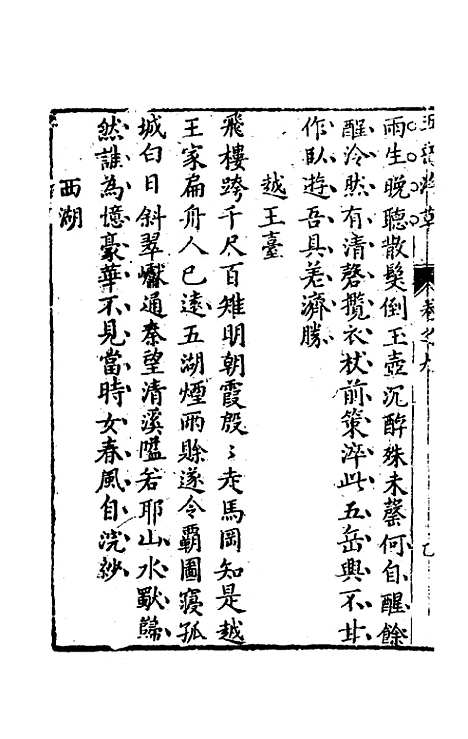 五嶽游草
卷之九
雨生晚聽散髮倒玉壺沉醉殊未罄何自醒餘
醒泠然有清磬攬衣杖前策淬此五岳興不甘
作臥遊吾具差濟勝
越王臺
飛樓跨千尺百雉明朝霞殷殷走馬岡知是越
王家扁舟人已遠五湖煙雨賒遂令霸圖寢孤
城白日斜翠巘通秦望清溪嗌若耶山水歇歸
然誰為憶豪華不見當時女春風自浣紗
西湖